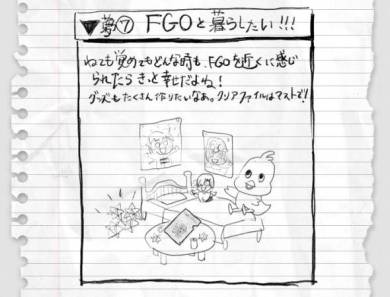 ▼夢⑦ FGOと暮らしたい!!!
ねても覚めてもどんな時も、FGOを近くに感じ
られたらきっと幸せだよね!
グッズもたくさん作りたいなあ。クリアファイルはマストで!